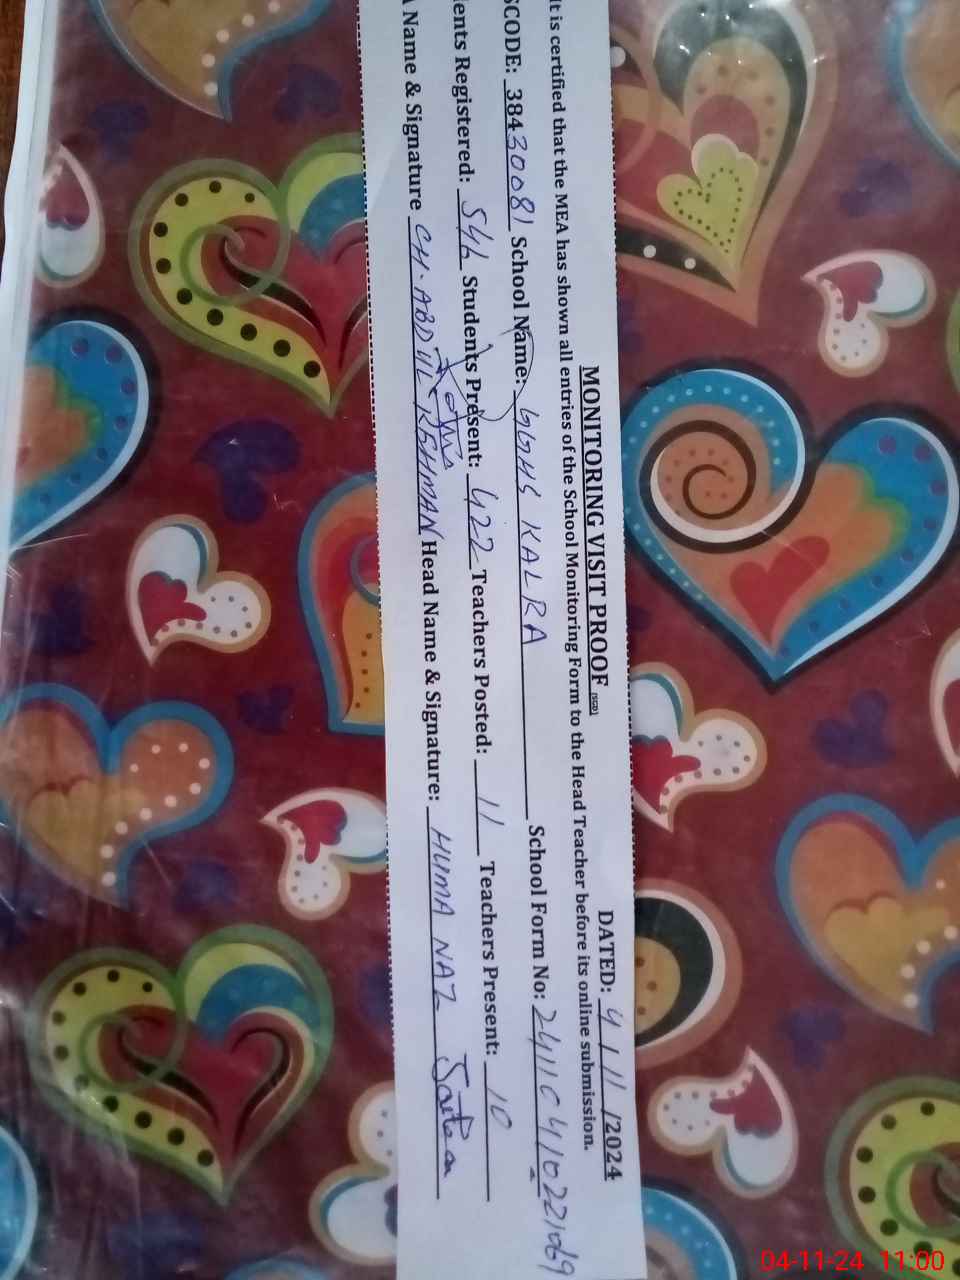 MONITORING VISIT PROOF (SGD) DATED: 4/11/2024
It is certified that the MEA has shown all entries of the School Monitoring Form to the Head Teacher before its online submission.
SCODE: 38430081 School Name: GGHS KALRA School Form No:
ents Registered: 546 Students Present: 422 Teachers Posted: 11 Teachers Present: 10
A Name & Signature CH. ABDUL REHMAN Head Name & Signature: HUMA NAZ
04-11-24 11:00